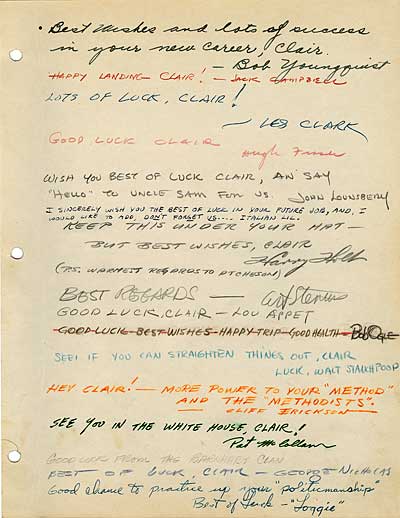 • Best Wishes and lots of success
in your new career, Clair.
– Bob Youngquist
HAPPY LANDING – CLAIR! – JACK CAMPBELL
LOTS OF LUCK, CLAIR!
– LES CLARK
GOOD LUCK CLAIR
Hugh Fraser
WISH YOU BEST OF LUCK CLAIR, AN' SAY
"HELLO" TO UNCLE SAM FOR US. JOHN LOUNSBERY
I SINCERELY WISH YOU THE BEST OF LUCK IN YOUR FUTURE JOB, AND, I
WOULD LIKE TO ADD, DON'T FORGET US.... ITALIAN LIL.
KEEP THIS UNDER YOUR HAT –
BUT BEST WISHES, CLAIR
Harry Holt
(P.S. WARMEST REGARDS TO ATCHESON)
BEST REGARDS – Stevens
GOOD LUCK, CLAIR – LOU APPET
GOOD LUCK – BEST WISHES – HAPPY TRIP – GOOD HEALTH – Bob Ogle
SEE! IF YOU CAN STRAIGHTEN THINGS OUT, CLAIR
LUCK, WALT STAUCHPOOP
HEY CLAIR! – MORE POWER TO YOUR "METHOD"
AND THE "METHODISTS".
– CLIFF ERICKSON –
SEE YOU IN THE WHITE HOUSE, CLAIR!
Pat McCollum
GOOD LUCK FROM THE CLAN
BEST OF LUCK, CLAIR – GEORGE NICHOLAS
Good chance to practice up your "politicmanship"
Best of Luck – "Loggie"